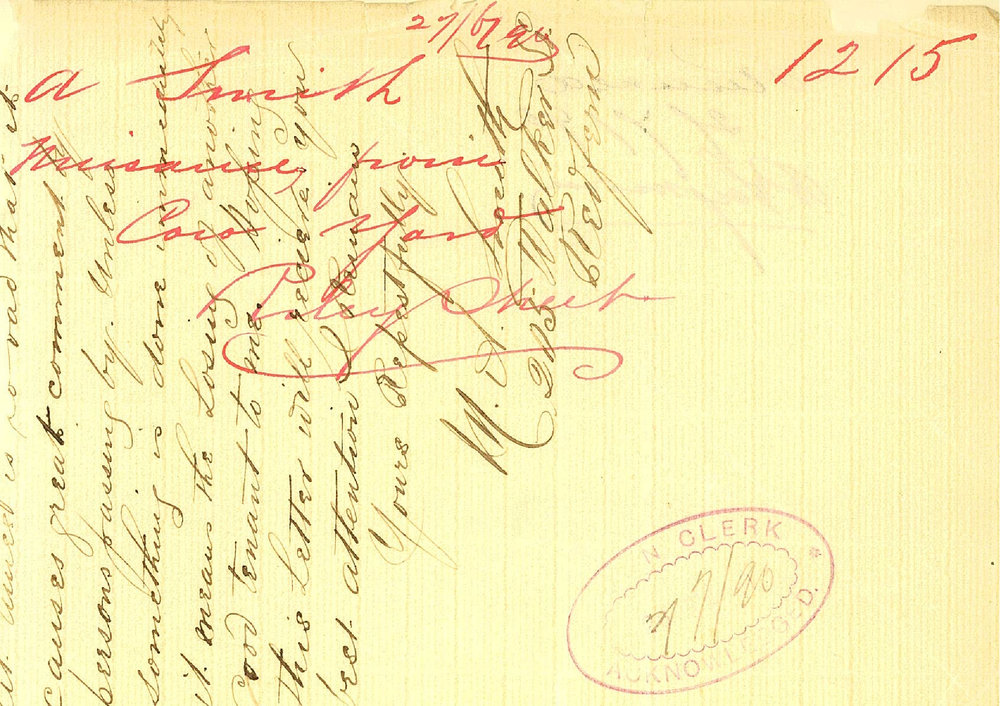 27/6/90
1215
A Smith
Nuisance from
Cow Yard
Riley Street
it smells so bad that it
causes great comment by
persons passing by. Unless
something is done immediately
it means the losing of another
Good tenant to me. Hoping
this Letter will receive your
best attention I remain
Yours Repectfully
M. A. Smith
Walker St
Redfern
N CLERK
27/7/90
ACKNOWLEDGED.